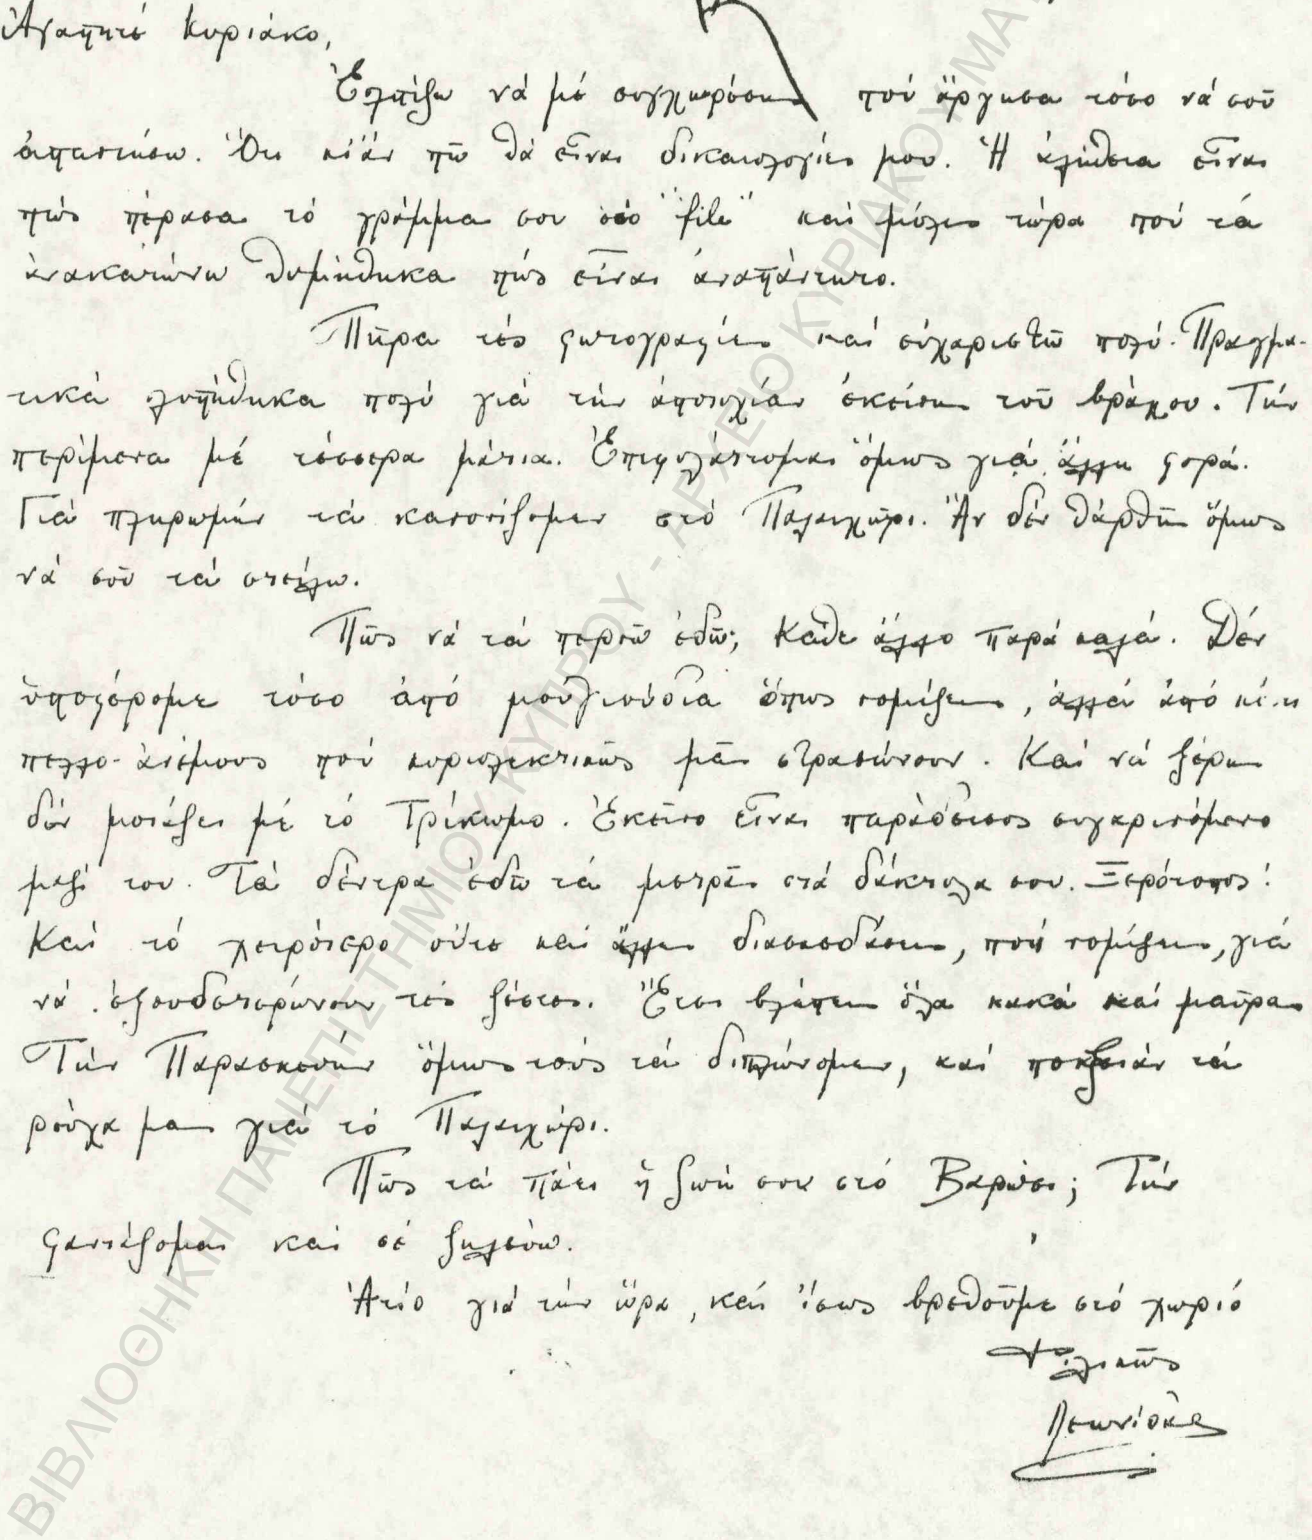 Ἀγαπητέ Κυριάκο,
Ἐλπίζω νά μέ συγχωρέσης πού ἄργησα τόσο νά σοῦ
ἀπαντήσω. Ὅτι κι ἄν πῶ θά εἶναι δικαιολογίες μου. Ἡ ἀλήθεια εἶναι
πώς πέρασα τό γράμμα σου στό "file" καί μόλις τώρα πού τά
ἀνακατώνω θυμήθηκα πώς εἶναι ἀναπάντητο.
Πῆρα τές φωτογραφίες καί εὐχαριστῶ πολύ. Πραγμα-
τικά λυπήθηκα πολύ γιά τήν ἀποτυχίαν ἐκείνη τοῦ βράχου. Τήν
περίμενα μέ τέσσερα μάτια. Ἐπιφυλάττομαι ὅμως γιά ἄλλη φορά.
Γιά πληρωμήν τά κανονίζομεν στό Παλαιχώρι. Ἄν δέν θάρθῆς ὅμως
νά σοῦ τά στείλω.
Πῶς νά τά περνῶ ἐδῶ; Κάθε ἄλλο παρά καλά. Δέν
ὑποφέρομε τόσο ἀπό μούγιούδια ὅπως νομίζεις, ἀλλά ἀπό
πελλο-ἀνέμους πού κυριολεκτικῶς μᾶς στραβώνουν. Καί νά ξέρης
δέν μοιάζει μέ τό Τρίκωμο. Ἐκεῖνο εἶναι παράδεισος συγκρινόμενο
μαζί του. Τά δέντρα ἐδῶ τά μετρᾶς στά δάκτυλα σου. Ξερότοπος!
Καί τό χειρότερο οὔτε καί ἄλλες διασκεδάσεις, πού νομίζεις, γιά
νά ἐξουδετερώνουν τές ζέστες. Ἔτσι βλέπεις ὅλα κακά καί μαῦρα
Τήν Παρασκευήν ὅμως τούς τά διπλώνομεν, καί τά
ροῦχα μας γιά τό Παλαιχώρι.
Πῶς τά πάει ἡ ζωή σου στό Βαρώσι; Τήν
φαντάζομαι καί σέ ζηλεύω.
Ἀτίο γιά τήν ὥρα, καί ἴσως βρεθοῦμε στό χωριό
Φιλικῶς
Λεωνίδας
ΒΙΒΛΙΟΘΗΚΗ ΠΑΝΕΠΙΣΤΗΜΙΟΥ ΚΥΠΡΟΥ - ΑΡΧΕΙΟ ΚΥΡΙΑΚΟΥ ΜΑ